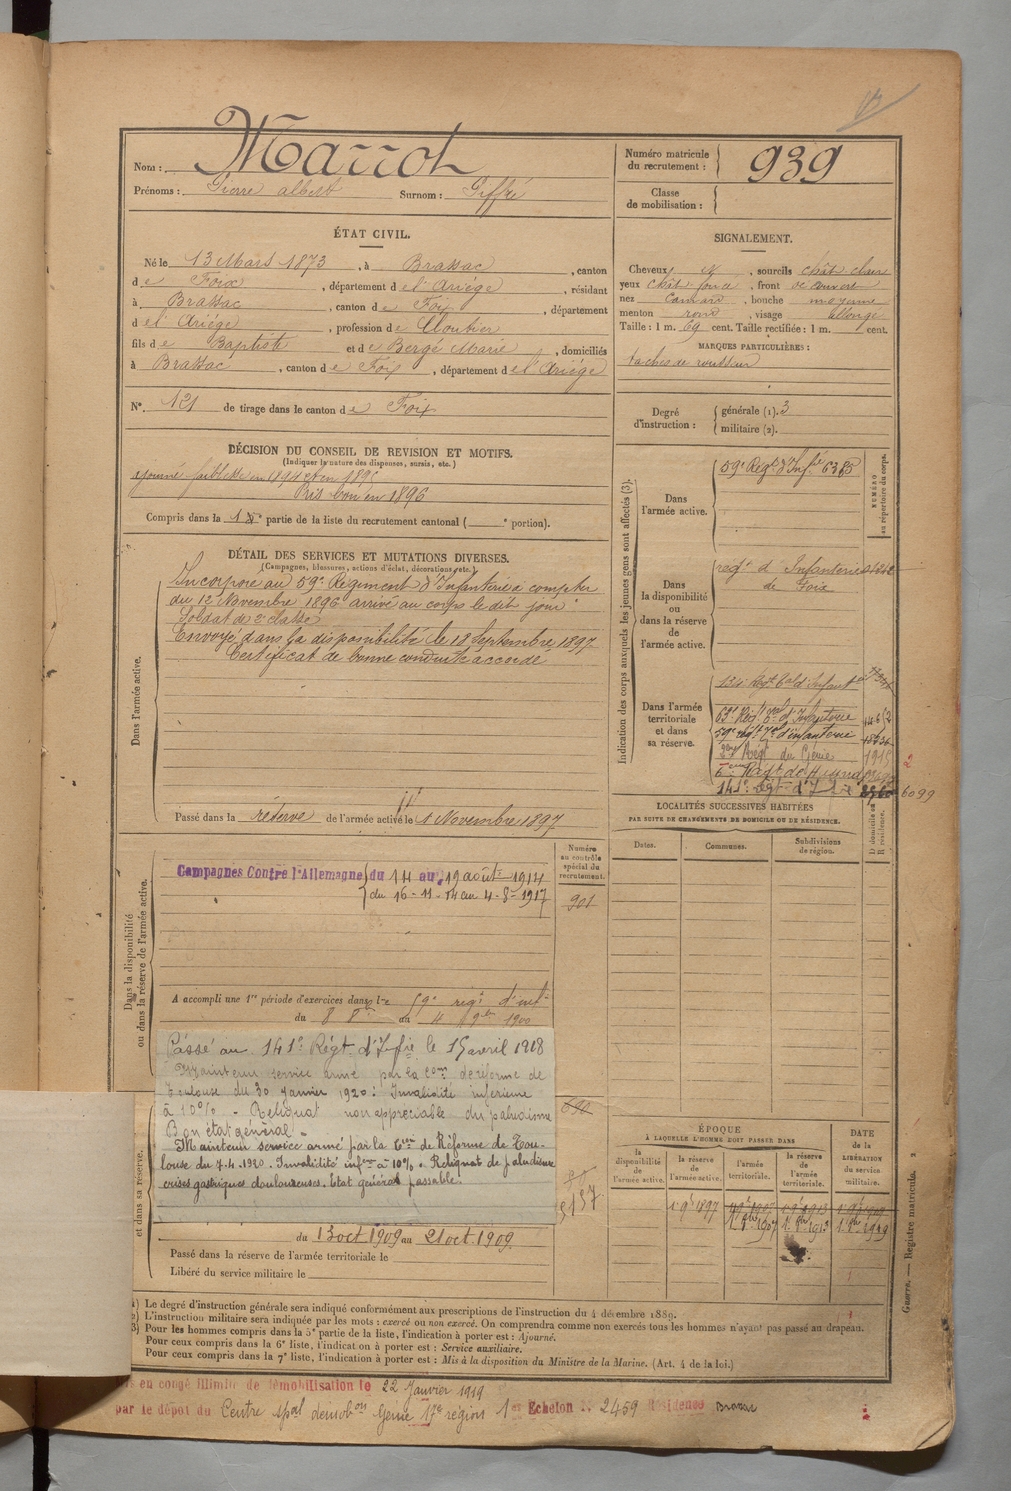 Nom : Marrot
Prénoms : Pierre albert Surnom : Geffré
Numéro matricule du recrutement : 939
Classe de mobilisation :
ÉTAT CIVIL.
Né le 13 Mars 1873, à Brassac, canton
de Foix, département de l'Ariége, résidant
à Brassac, canton de Foix, département
de l'Ariége, profession de Cloutier
fils de Baptiste et de Bergé Marie, domiciliés
à Brassac, canton de Foix, département de l'Ariége
N° 121 de tirage dans le canton de Foix
SIGNALEMENT.
Cheveux, sourcils chât clair
yeux chât, front découvert
nez Camard, bouche moyenne
menton rond, visage allongé
Taille : 1 m. 69 cent. Taille rectifiée : 1 m. cent.
MARQUES PARTICULIÈRES :
taches de rousseur
Degré d'instruction : générale (1). 3
militaire (2).
DÉCISION DU CONSEIL DE REVISION ET MOTIFS.
(Indiquer la nature des dispenses, sursis, etc.)
ajourné faiblesse en 1894 et en 1895
Pris bon en 1896
Compris dans la 1e partie de la liste du recrutement cantonal ( e portion).
DÉTAIL DES SERVICES ET MUTATIONS DIVERSES.
(Campagnes, blessures, actions d'éclat, décorations, etc.)
Dans l'armée active.
Incorporé au 59e Régiment d'Infanterie a compter
du 12 Novembre 1896 arrivé au corps le dit jour
Soldat de 2e classe
Envoyé dans la disponibilité le 18 Septembre 1897
Certificat de bonne conduite accordé
Passé dans la réserve de l'armée active le 1 Novembre 1897
Indication des corps auxquels les jeunes gens sont affectés (3).
NUMÉRO au répertoire du corps.
Dans l'armée active.
59e Régt d'Infie 6385
Dans la disponibilité ou dans la réserve de l'armée active.
regt d'Infanterie
de Foix
Dans l'armée territoriale et dans sa réserve.
134e Régt tal d'Infante
63e Régt d'Infanterie
59e régt d'infanterie
Régt du Génie 1915
141e régt 6099
LOCALITÉS SUCCESSIVES HABITÉES
PAR SUITE DE CHANGEMENTS DE DOMICILE OU DE RÉSIDENCE.
Dates. Communes. Subdivisions de région. D domicile ou R résidence.
Dans la disponibilité ou dans la réserve de l'armée active.
Numéro au contrôle spécial du recrutement.
901
Campagnes Contre l'Allemagne du 14 au 19 août 1914
du 16-11-14 au 4-8-1917
A accompli une 1re période d'exercices dans le 59e régt d'inf
du 8 8bre au 4 9bre 1900
Passé au 141e Régt d'Infie le 15 avril 1918
Maintenu service armé par la Com de réforme de
Toulouse du 30 Janvier 1920 : Invalidité inférieure
à 10% - Reliquat non appréciable du paludisme
Bon état général -
Maintenu service armé par la Con de Réforme de Tou-
louse du 7.4.1920. Invalidité infre à 10%. Reliquat de paludisme
crises gastriques douloureuses. Etat général passable.
et dans sa réserve.
du 13 oct 1909 au 21 oct 1909
Passé dans la réserve de l'armée territoriale le
Libéré du service militaire le
ÉPOQUE
À LAQUELLE L'HOMME DOIT PASSER DANS
la disponibilité de l'armée active. la réserve de l'armée active. l'armée territoriale. la réserve de l'armée territoriale.
DATE de la LIBÉRATION du service militaire.
1 9bre 1897
1 9bre 1907 1 9bre 1913 1 9bre 1919
1) Le degré d'instruction générale sera indiqué conformément aux prescriptions de l'instruction du 4 décembre 1889.
2) L'instruction militaire sera indiquée par les mots : exercé ou non exercé. On comprendra comme non exercés tous les hommes n'ayant pas passé au drapeau.
3) Pour les hommes compris dans la 5e partie de la liste, l'indication à porter est : Ajourné.
Pour ceux compris dans la 6e liste, l'indication à porter est : Service auxiliaire.
Pour ceux compris dans la 7e liste, l'indication à porter est : Mis à la disposition du Ministre de la Marine. (Art. 4 de la loi.)
Guerre. — Registre matricule. 2
en congé illimité de démobilisation le 22 Janvier 1919
par le dépôt du Centre spal démobon Génie 17e région 1er Echelon N. 2459 Résidence Brassac